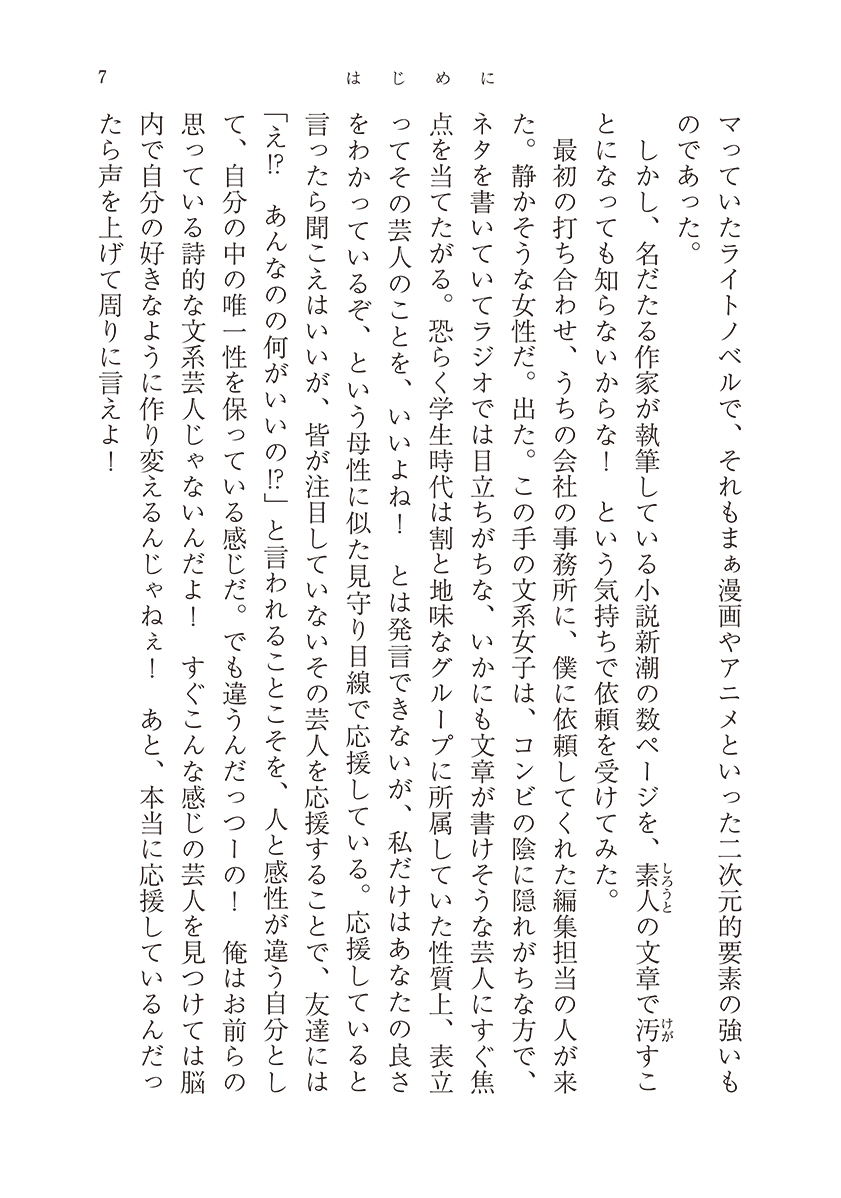 7
はじめに
マっていたライトノベルで、それもまぁ漫画やアニメといった二次元的要素の強いも
のであった。
　しかし、名だたる作家が執筆している小説新潮の数ページを、素人の文章で汚すこ
しろうと
けが
とになっても知らないからな！　という気持ちで依頼を受けてみた。
　最初の打ち合わせ、うちの会社の事務所に、僕に依頼してくれた編集担当の人が来
た。静かそうな女性だ。出た。この手の文系女子は、コンビの陰に隠れがちな方で、
ネタを書いていてラジオでは目立ちがちな、いかにも文章が書けそうな芸人にすぐ焦
点を当てたがる。恐らく学生時代は割と地味なグループに所属していた性質上、表立
ってその芸人のことを、いいよね！　とは発言できないが、私だけはあなたの良さ
をわかっているぞ、という母性に似た見守り目線で応援している。応援していると
言ったら聞こえはいいが、皆が注目していないその芸人を応援することで、友達には
「え⁉　あんなのの何がいいの⁉」と言われることこそを、人と感性が違う自分とし
て、自分の中の唯一性を保っている感じだ。でも違うんだっつーの！　俺はお前らの
思っている詩的な文系芸人じゃないんだよ！　すぐこんな感じの芸人を見つけては脳
内で自分の好きなように作り変えるんじゃねぇ！　あと、本当に応援しているんだっ
たら声を上げて周りに言えよ！